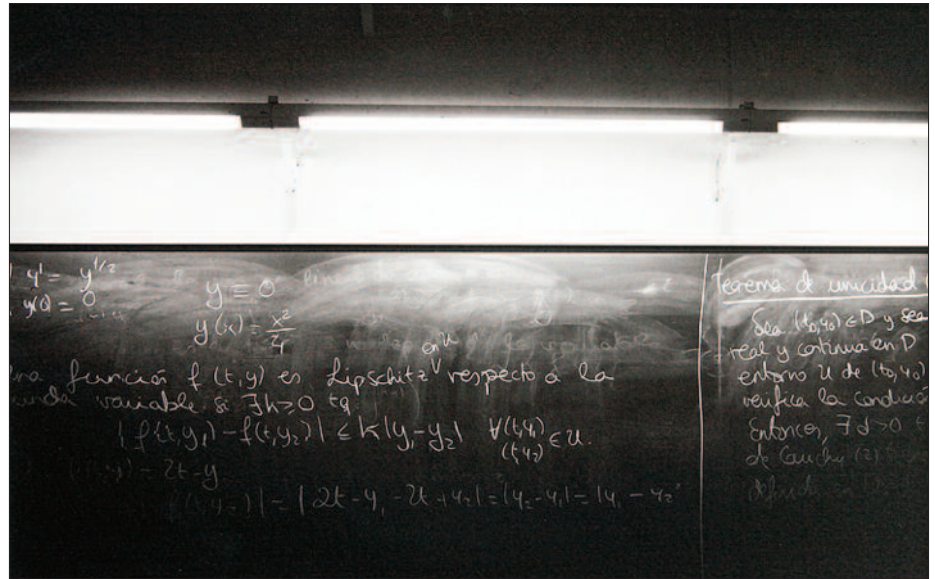 y' = y^{1/2}
y(0) = 0
y ≡ 0
y(x) = x²/4
función f(t,y) es Lipschitz en U respecto a la
variable si ∃k≥0 tq
|f(t,y₁) - f(t,y₂)| ≤ k|y₁-y₂| ∀(t,y₁)
(t,y₂) ∈ U.
= 2t-y
= |2t-y₁-2t+y₂| = |y₂-y₁| = |y₁-y₂
Teorema de unicidad
Sea (t₀,y₀) ∈ D y sea
real y continua en D
entorno U de (t₀,y₀)
verifica la condició
Entonces, ∃ d>0
de Cauchy (2)